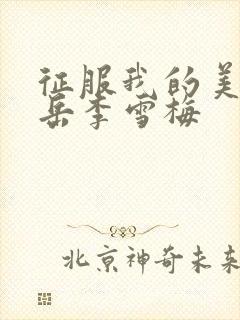 征服我的美
岳李雪梅
北京神奇未来